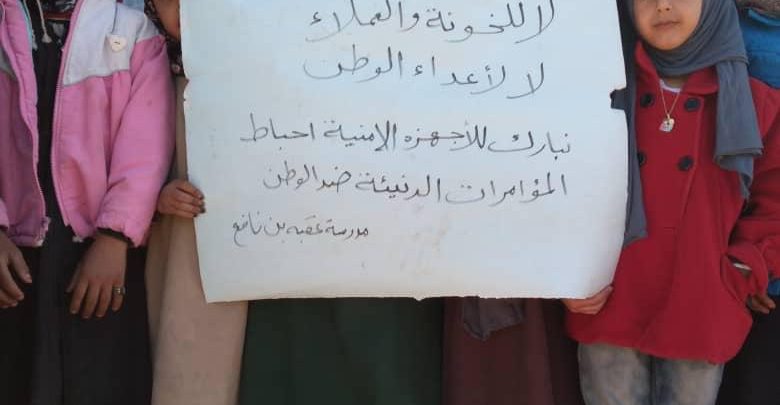 لا للخونة والعملاء
لا لأعداء الوطن
نبارك للأجهزه الإمنية احباط
المؤامرات الدنيئة ضد الوطن
مدرسة عقبه بن نافع